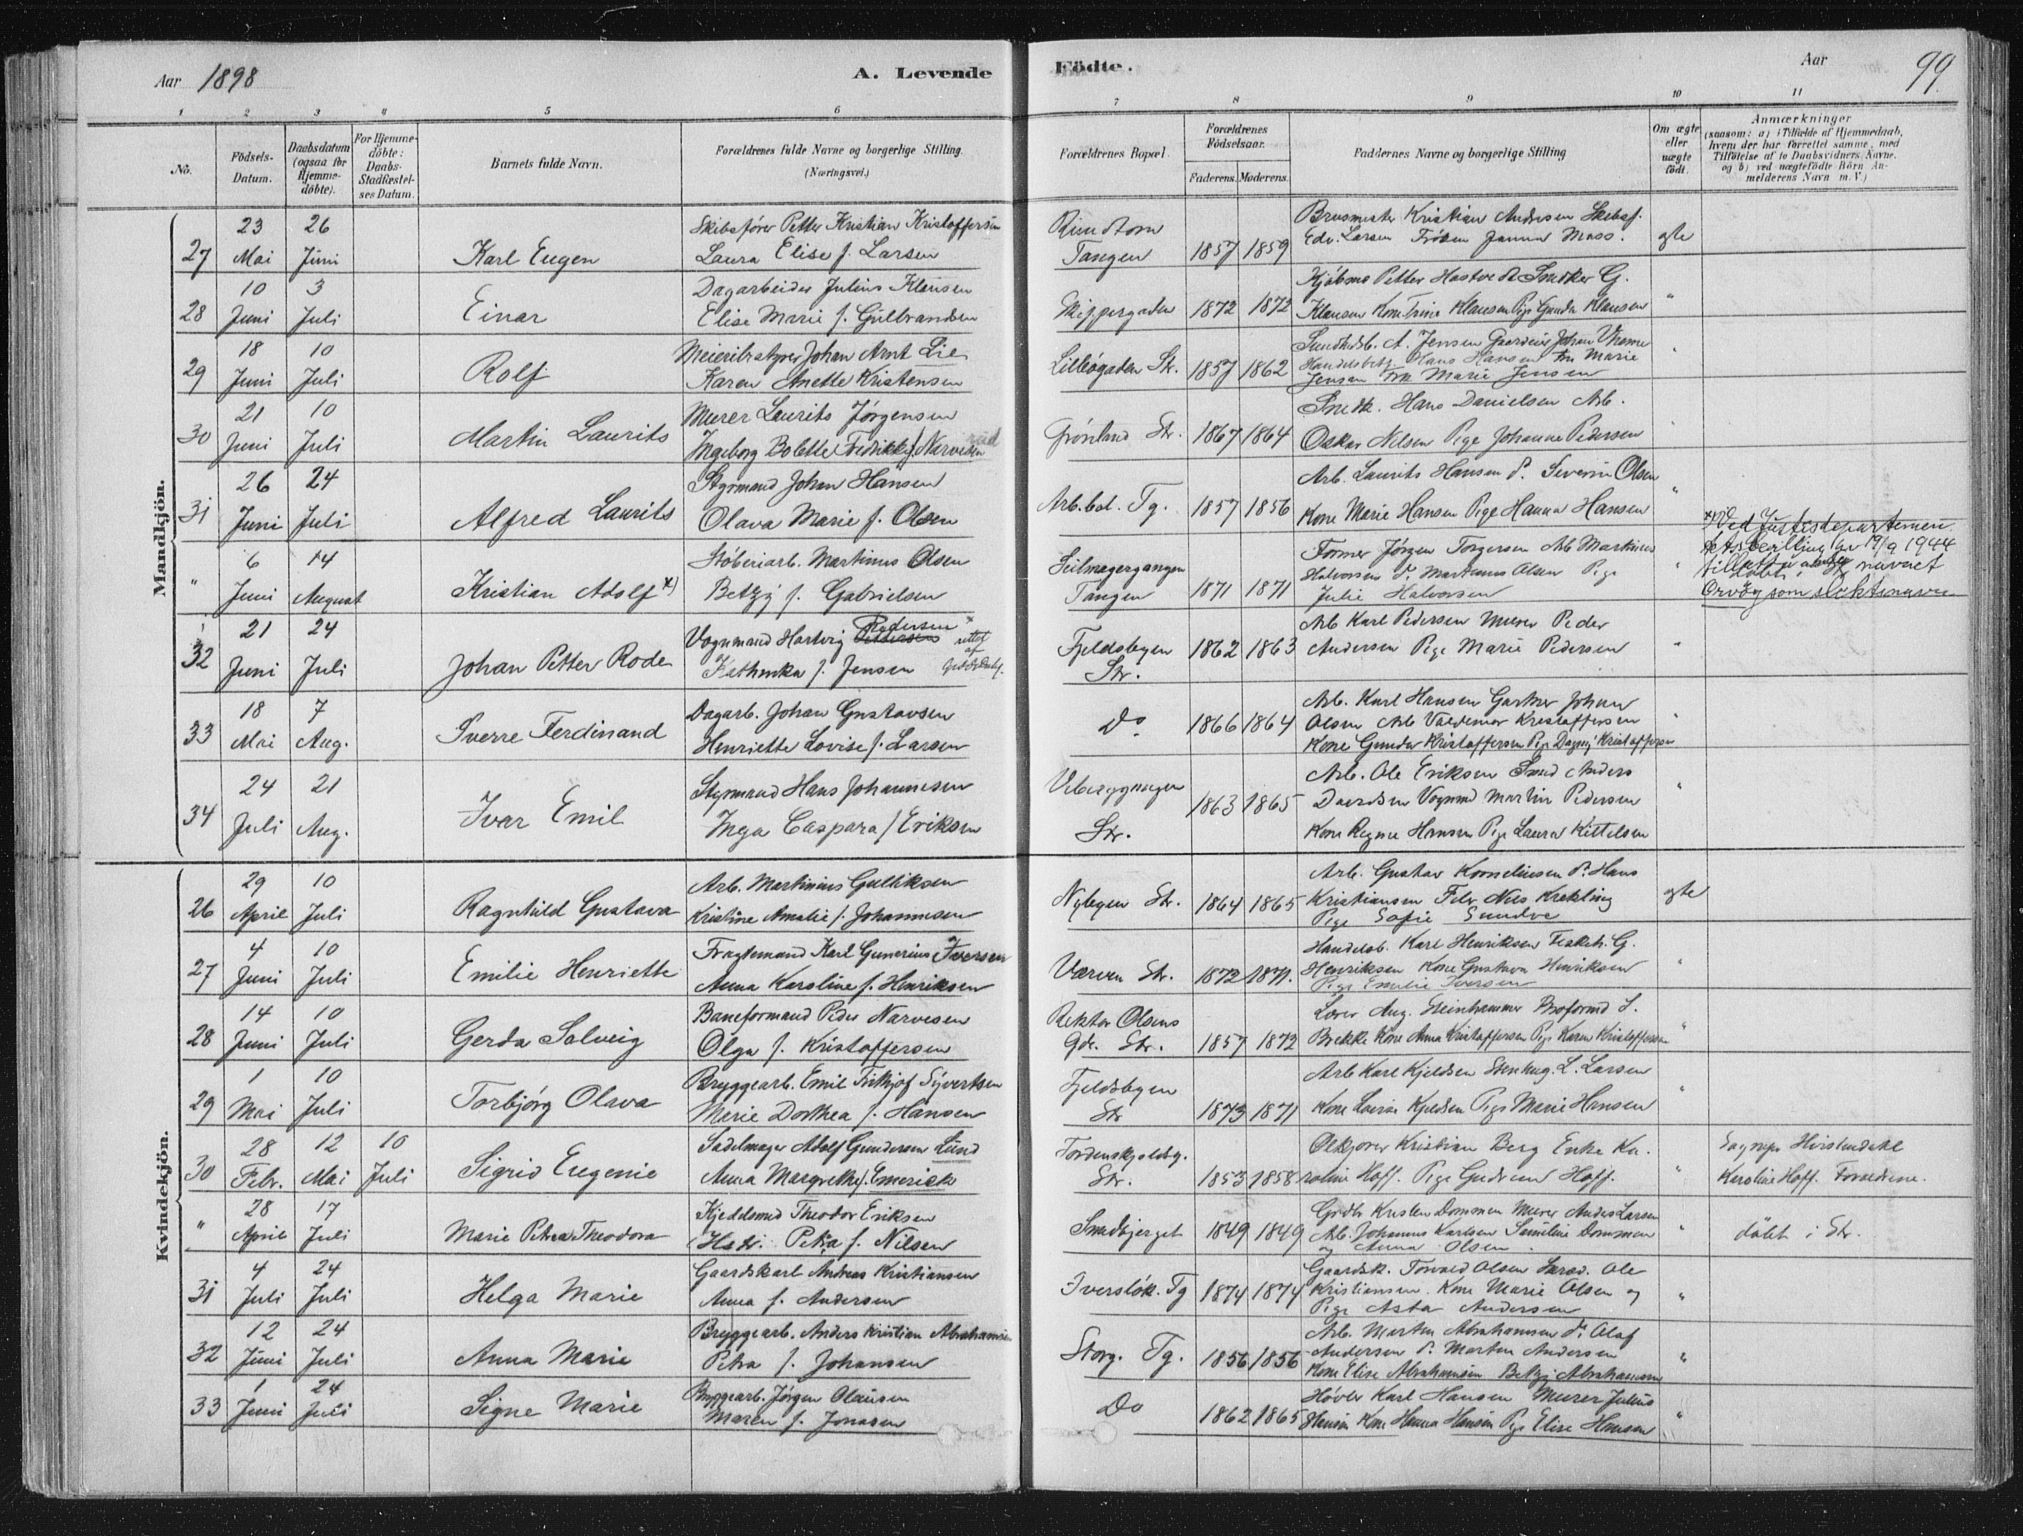 Aar 1898
A. Levende Födte.
Aar
99.
1 2 3 4 5 6 7 8 9 10 11
No.
Födsels-
Datum.
Daabsdatum
(ogsaa for
Hjemme-
döbte).
For Hjemme-
döbte:
Daabs-
Stadfæstel-
ses Datum.
Barnets fulde Navn.
Forældrenes fulde Navne og borgerlige Stilling.
(Næringsvei.)
Forældrenes Bopæl.
Forældrenes
Födselsaar.
Faderens. Moderens.
Faddernes Navne og borgerlige Stilling
Om ægte
eller
uægte
födt.
Anmærkninger
(saasom: a) i Tilfælde af Hjemmedaab,
hvem der har forrettet samme, med
Tilföielse af to Daabsvidners Navne.
og b) ved uægtefödte Börn An-
melderens Navn m. V.)
Mandkjön.
23 26 Skibsfører Petter Kristian Kristoffersen Brusmester Kristian Andersen Skibsf.
27 Mai Juni Karl Eugen Laura Elise f. Larsen Tangen 1857 1859 Edv. Larsen Frøken Janna Moss. egte
10 3 Dagarbeider Julius Klausen Petter Snedker G.
28 Juni Juli Einar Elise Marie f. Gulbrandsen Skippergaden 1872 1872 Klausen Kone Trine Klausen Pige Gunda Klausen "
18 10 Meieribestyrer Johan Arnt Lie A. Jensen Johan
29 Juni Juli Rolf Karen Anette Kristensen Lilleøgaden Str. 1857 1862 Hans Hansen Fru Marie
Jensen Frk Marie Jensen "
21 10 Murer Laurits Jørgensen Snedk. Hans Danielsen Arb.
30 Juni Juli Martin Laurits Ingeborg Bolette Fredrikke f. Narvesen Grønland Str. 1867 1864 Oskar Nilsen Pige Johanne Pedersen "
26 24 Styrmand Johan Hansen Arb. Laurits Hansen d. Severin Olsen
31 Juni Juli Alfred Laurits Olava Marie f. Olsen Arb.bol. Tg. 1857 1856 Kone Marie Hansen Pige Hanna Hansen "
6 14 Støberiarb. Martinus Olsen Seilmagergangen Former Jørgen Torgersen Arb Martinus
" Juni August Kristian Adolf x) Betzy f. Gabrielsen Tangen 1871 1871 Halvorsen d. Martinus Olsen Pige
Julie Halvorsen "
x) Ved Justisdepartemen-
tets bevilling av 19/9 1944
tillatt å anta navnet
Ørvåg som slektsnavn
21 24 Vognmand Hartvig Pettersen Pedersen x Arb Karl Pedersen Murer Peder
32 Juni Juli Johan Petter Rode Kathinka f. Jensen rettet af Fjeldsbyen Str. 1862 1863 Andersen Pige Marie Pedersen "
18 7 Dagarb. Johan Gustavsen Arb. Karl Hansen Gartner Johan
33 Mai Aug. Sverre Ferdinand Henriette Lovise f. Larsen Do 1866 1864 Olsen Arb Valdemar Kristoffersen
Kone Gunda Kristoffersen Pige Dagny Kristoffersen "
24 21 Styrmand Hans Johannesen Arb. Ole Eriksen Smed Anders
34 Juli Aug. Ivar Emil Inga Caspara f. Eriksen Str. 1863 1865 Davidsen Vognmd Martin Pedersen
Kone Regine Hansen Pige Laura Kittelsen "
Kvindekjön.
29 10 Arb. Martinius Gulliksen Arb. Gustav Kornelius d. Hans
26 April Juli Ragnhild Gustava Kristine Amalie f. Johannesen Nybyen Str. 1864 1865 Kristiansen Filer Nils Krekling
Pige Sofie Sundve egte
4 10 Fragtemand Karl Gunerius Iversen Handelsb. Karl Henriksen Fiskeh. G.
27 Juni Juli Emilie Henriette Anna Karoline f. Henriksen Værven Str. 1872 1871. Henriksen Kone Gustava Henriksen
Pige Emilie Iversen "
14 10 Baneformand Peder Narvesen Rektor Olsens Lærer Aug. Steinhammer Broformd S.
28 Juni Juli Gerda Solveig Olga f. Kristoffersen Gde. Str. 1857 1872 Brekke Kone Anna Kristoffersen Pige Karen Kristoffersen "
1 10 Bryggearb. Emil Fritjof Syvertsen Fjeldsbyen Arb Karl Kjeldsen Stenhug. L. Larsen
29 Mai Juli Torbjørg Olava Marie Dorthea f. Hansen Str 1873 1871 Kone Lovise Kjeldsen Pige Marie Hansen "
28 12 10 Sadelmager Adolf Gundersen Lund Tordenskjoldsg. Kristian Berg Enke Ka-
30 Febr. Mai Juli Sigrid Eugenie Anna Margrethe f. Emerick Str. 1853 1858 roline Hoff. Pige Gudrun Hoff. "
Karoline Hoff. Forældrene.
28 17 Kjedelsmed Theodor Eriksen Kristen Dommen Murer Anders Larsen
" April Juli Marie Petrea Theodora Petra f. Nilsen Smedbjerget 1849 1849 Arb. Johannes Karlsen Dommen
og Anna Olsen. " døbt i Str.
4 24 Gaardskarl Andreas Kristiansen Gaardsk. Torvald Olsen Ole
31 Juli Juli Helga Marie Anna f. Andersen Iversløk. Tg 1874 1874 Kristiansen. Kone Marie Olsen og
Pige Asta Andersen "
12 24 Bryggearb. Anders Kristian Abrahamsen Arb. Martin Abrahamsen d. Olaf
32 Juni Juli Anna Marie Petra f. Johansen Storg. Tg. 1856 1856 Andersen d. Morten Andersen
Kone Elise Abrahamsen Betzy Abrahamsen "
1 24 Bryggearb. Jørgen Olausen Høvler Karl Hansen Murer Julius
33 Juni Juli Signe Marie Maren f. Jonasen Do 1862 1865 Hansen Kone Hanna Hansen Pige Elise Hansen "